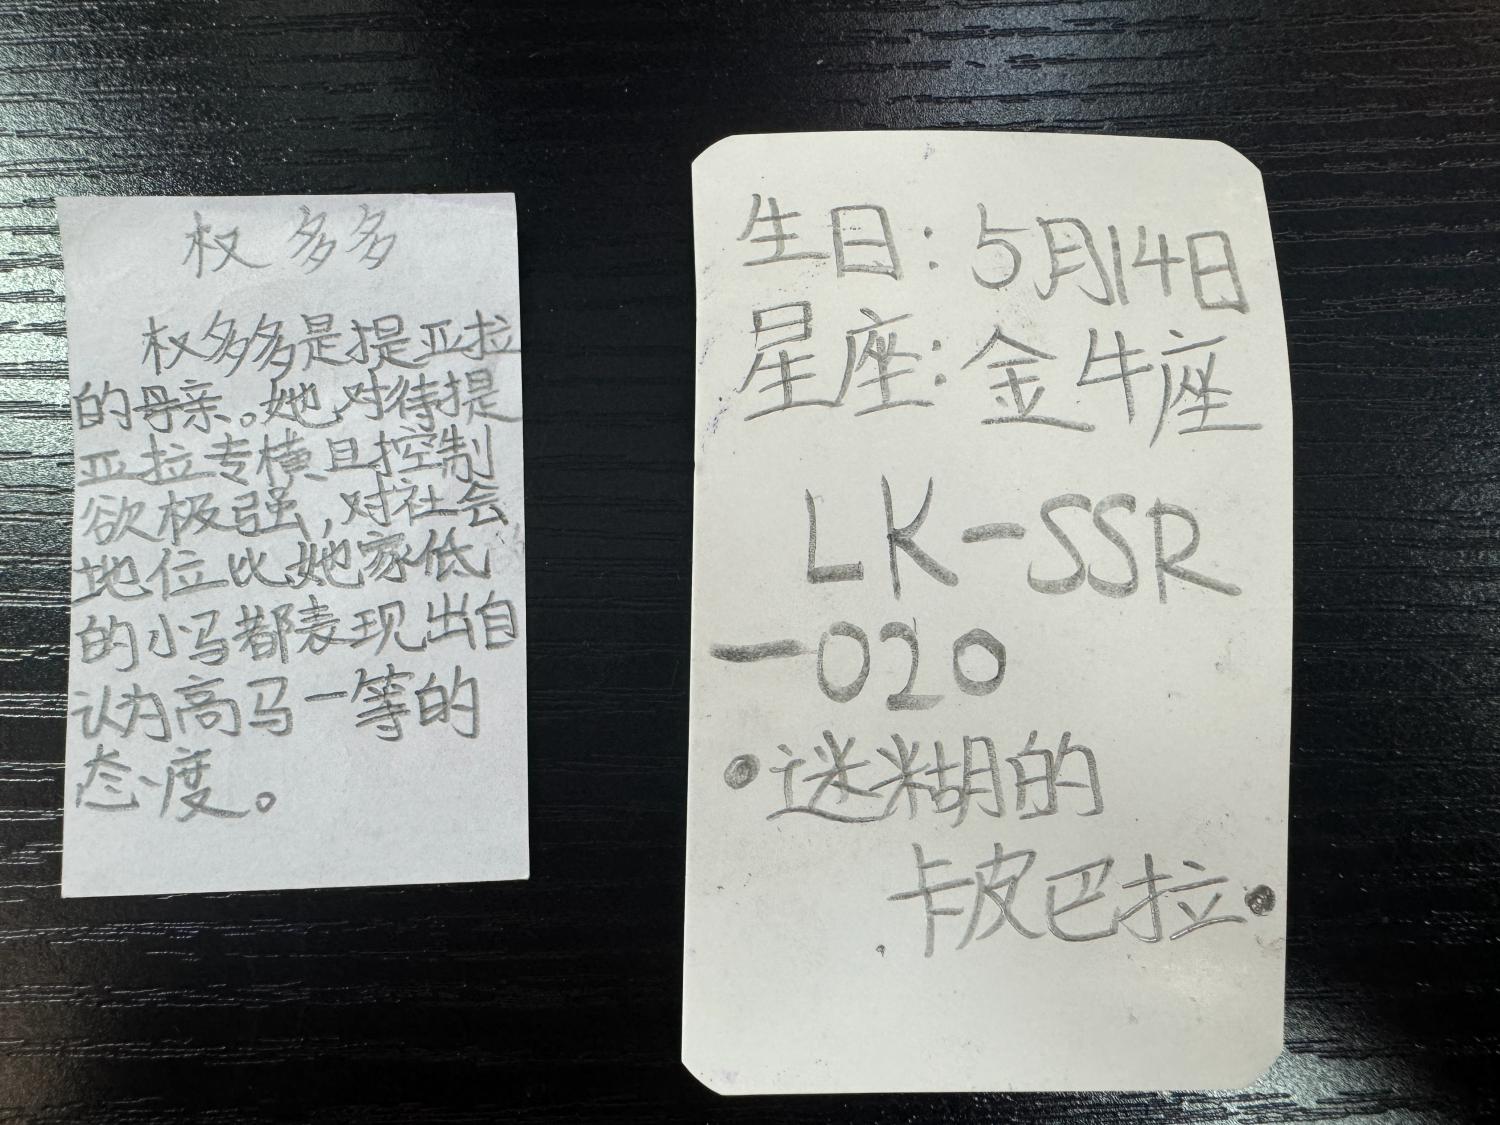 权多多
权多多是提亚拉
的母亲。她对待提
亚拉专横且控制
欲极强,对社会
地位比她家低
的小马都表现出自
认为高马一等的
态度。
生日:5月14日
星座:金牛座
LK-SSR
-020
•迷糊的
卡皮巴拉•